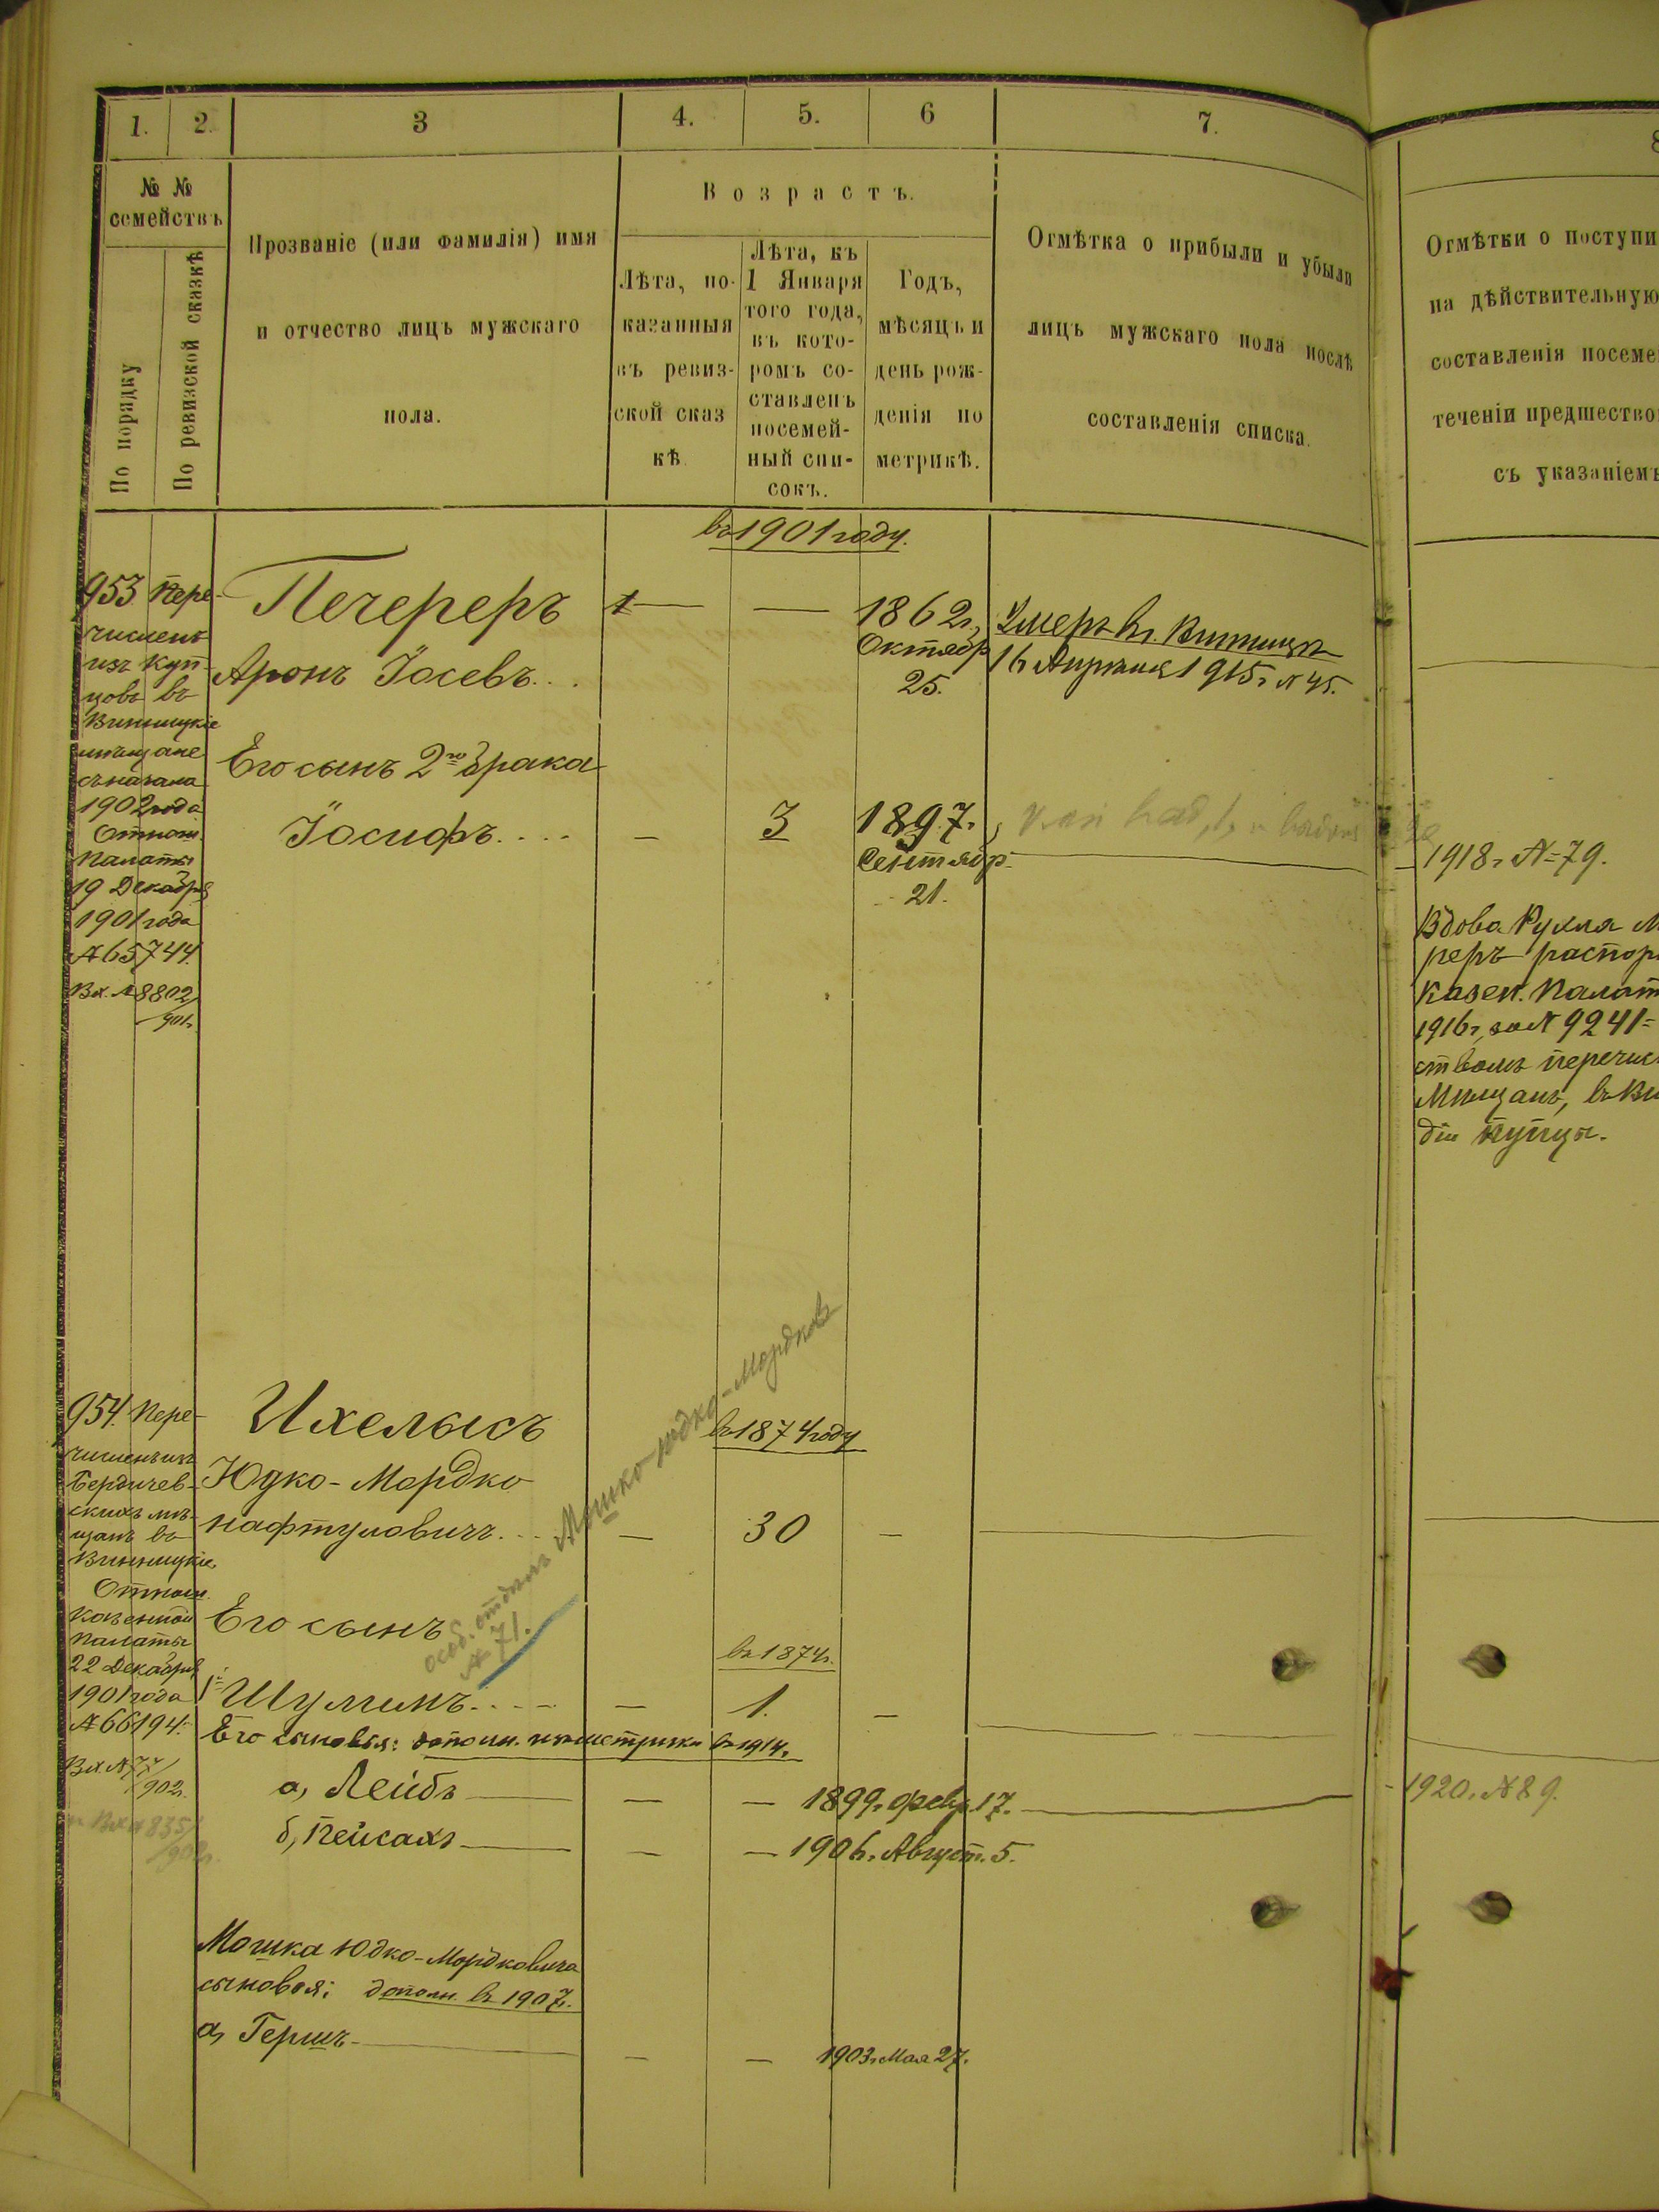 1.
2.
3
4.
5.
6
7.
8
№ №
семействъ
По порядку
По ревизской сказкѣ
Прозваніе (или фамилія) имя
и отчество лицъ мужскаго
пола.
Возрастъ.
Лѣта, по-
казанныя
въ ревиз-
ской сказ
кѣ.
Лѣта, къ
1 Января
того года,
въ кото-
ромъ со-
ставленъ
посемей-
ный спи-
сокъ.
Годъ,
мѣсяцъ и
день рож-
денія по
метрикѣ.
Отмѣтка о прибыли и убыли
лицъ мужскаго пола послѣ
составленія списка.
Отмѣтки о поступи
на дѣйствительную
составленія посеме
теченіи предшество
съ указаніемъ
въ 1901 году.
953 Пере-
численъ
изъ куп-
цовъ въ
Винницкіе
мѣщане
съ начала
1902 года
Отнош.
Палаты
19 Декабря
1901 года
№ 65744.
Вх. № 8802/
901 г.
Печереръ
Аронъ Іосевъ...
1862 г.
Октябр
25.
Умеръ въ г. Винницѣ
16 Апрѣля 1915 г. № 45.
Его сынъ 2го брака
Іосифъ....
—
3
1897 г.
Сентябр
21.
1918 г. № 79.
Вдова Рухля
реръ распор
Казен. Палат
1916 г. за № 9241
ствомъ перечис
Мѣщанъ, въ Ви
діи купцы.
954. Пере-
численъ изъ
Бердичев-
скихъ мѣ-
щанъ въ
Винницкіе,
Отнош.
Казенной
Палаты
22 Декабря
1901 года
№ 66194.
Вх. № 77/
902 г.
Вх № 835/
Ихелысъ
Юдко-Мордко
Нафтуловичъ....
въ 1874 году
— 30 —
особ. отдѣлъ Мошко Юдко-Мордков
№ 71.
Его сынъ
въ 1874 г.
1й Шулимъ.... — 1. —
Его сыновья: дополн. по метрики въ 1914 г.
а, Лейбъ — — 1899 г. Февр. 17.
1920 г. № 89.
б, Пейсахъ — — 1906 г. Август. 5.
Мошка Юдко-Мордковича
сыновья: дополн. въ 1907 г.
а, Гершъ — — 1903 г. Мая 27.